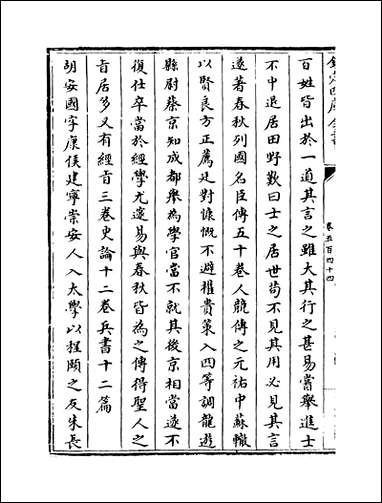 欽定四庫全書
卷五百四十四
百姓皆出於一道其言之雖大其行之甚易嘗舉進士
不中退居田野歎曰士之居世苟不見其用必見其言
遂著春秋列國名臣傳五十卷人競傳之元祐中蘇轍
以賢良方正薦廷對慷慨不避權貴策入四等調龍遊
縣尉蔡京知成都舉為學官當不就其後京相當遂不
復仕卒當於經學尤邃易與春秋皆為之傳得聖人之
㫖居多又有經㫖三卷史論十二卷兵書十二篇
胡安國字康侯建寧崇安人入太學以程頤之友朱長